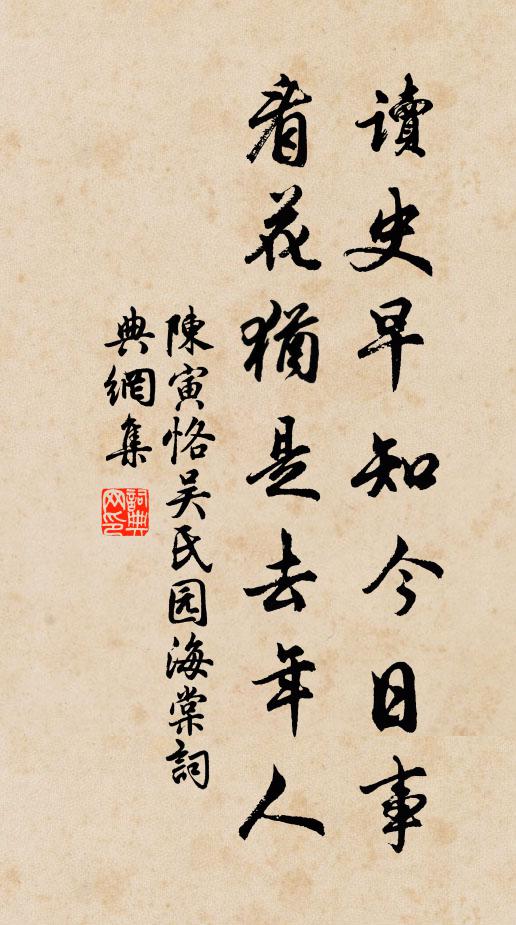 讀史早知今日事
看花猶是去年人
陳寅恪吴氏园海棠詞
典網集
詞典网印